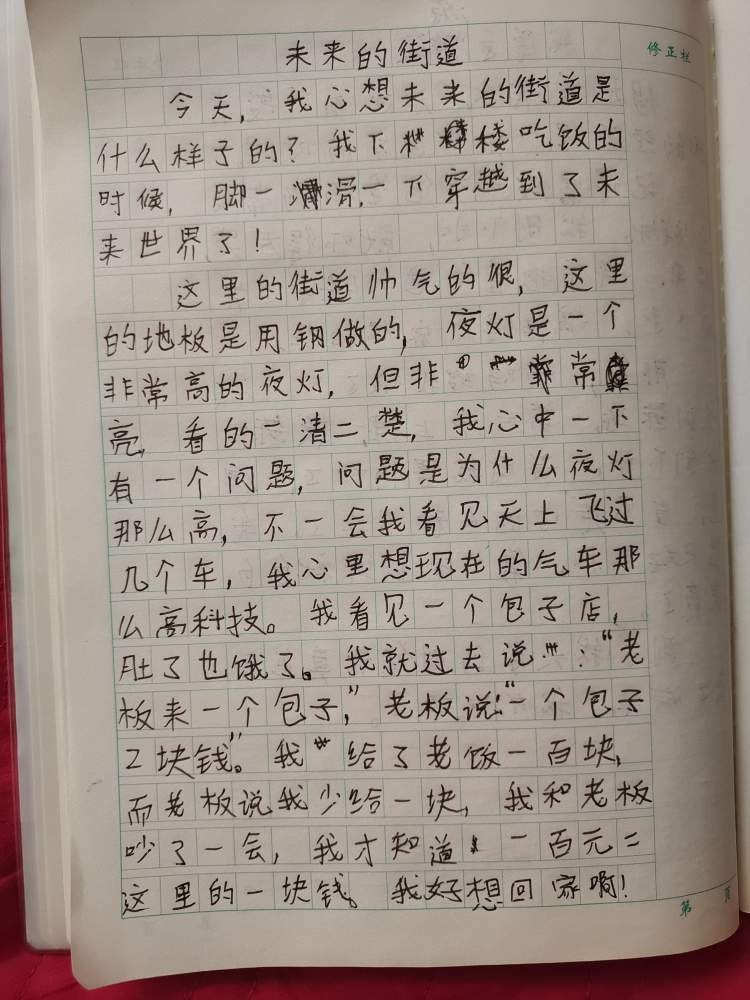 未来的街道
修正栏
今天，我心想未来的街道是
什么样子的？我下楼吃饭的
时候，脚一滑，一下穿越到了未
来世界了！
这里的街道帅气的很，这里
的地板是用钢做的，夜灯是一个
非常高的夜灯，但非常
亮，看的一清二楚，我心中一下
有一个问题，问题是为什么夜灯
那么高，不一会我看见天上飞过
几个车，我心里想现在的气车那
么高科技。我看见一个包子店，
肚了也饿了。我就过去说：“老
板来一个包子，”老板说：“一个包子
2块钱”。我给了老饭一百块，
而老板说我少给一块，我和老板
吵了一会，我才知道一百元=
这里的一块钱。我好想回家啊！
第 页